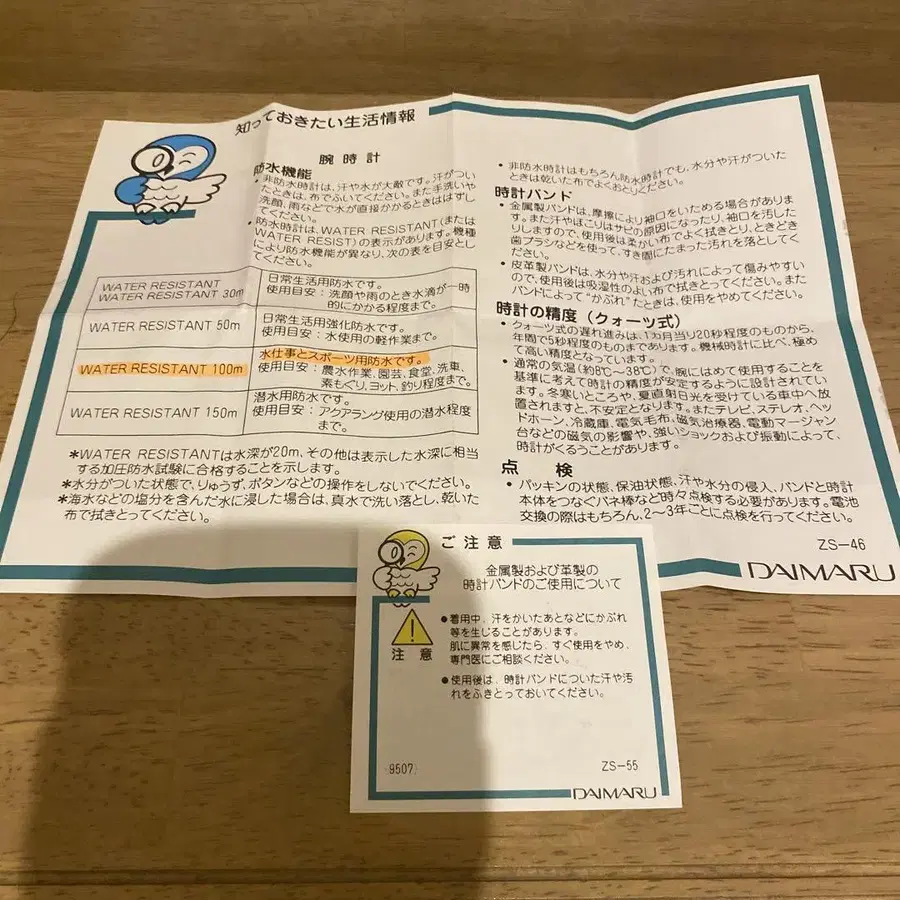 知っておきたい生活情報
腕時計
防水機能
• 非防水時計は、汗や水が大敵です。汗がつい
たときは、布でふいてください。また手洗いや
洗顔、雨などで水が直接かかるときははずし
てください。
• 防水時計は、WATER RESISTANT(または
WATER RESIST)の表示があります。機種
により防水機能が異なり、次の表を目安とし
てください。
WATER RESISTANT
WATER RESISTANT 30m
日常生活用防水です。
使用目安:洗顔や雨のとき水滴が一時
的にかかる程度まで。
WATER RESISTANT 50m
日常生活用強化防水です。
使用目安:水使用の軽作業まで。
WATER RESISTANT 100m
水仕事とスポーツ用防水です。
使用目安:農水作業、園芸、食堂、洗車、
素もぐり、ヨット、釣り程度まで。
WATER RESISTANT 150m
潜水用防水です。
使用目安:アクアラング使用の潜水程度
まで。
*WATER RESISTANTは水深が20m、その他は表示した水深に相当
する加圧防水試験に合格することを示します。
*水分がついた状態で、りゅうず、ボタンなどの操作をしないでください。
*海水などの塩分を含んだ水に浸した場合は、真水で洗い落とし、乾いた
布で拭きとってください。
• 非防水時計はもちろん防水時計でも、水分や汗がついた
ときは乾いた布でよくおとりください。
時計バンド
• 金属製バンドは、摩擦により袖口をいためる場合がありま
す。また汗やほこりはサビの原因になったり、袖口を汚した
りしますので、使用後は柔かい布でよく拭きとり、ときどき
歯ブラシなどを使って、すき間にたまった汚れを落としてく
ださい。
• 皮革製バンドは、水分や汗および汚れによって傷みやすい
ので、使用後は吸湿性のよい布で拭きとってください。また
バンドによって“かぶれ”たときは、使用をやめてください。
時計の精度(クォーツ式)
• クォーツ式の遅れ進みは、1カ月当り20秒程度のものから、
年間で5秒程度のものまであります。機械時計に比べ、極め
て高精度となっています。
• 通常の気温(約8℃〜38℃)で、腕にはめて使用することを
基準に考えて時計の精度が安定するように設計されてい
ます。冬寒いところや、夏直射日光を受けている車中へ放
置されますと、不安定となります。またテレビ、ステレオ、ヘッ
ドホーン、冷蔵庫、電気毛布、磁気治療器、電動マージャン
台などの磁気の影響や、強いショックおよび振動によって、
時計がくるうことがあります。
点検
• パッキンの状態、保油状態、汗や水分の侵入、バンドと時計
本体をつなぐバネ棒など時々点検する必要があります。電池
交換の際はもちろん、2〜3年ごとに点検を行ってください。
ZS-46
DAIMARU
ご注意
金属製および革製の
時計バンドのご使用について
注意
●着用中、汗をかいたあとなどにかぶれ
等を生じることがあります。
肌に異常を感じたら、すぐ使用をやめ、
専門医にご相談ください。
●使用後は、時計バンドについた汗や汚
れをふきとっておいてください。
(9507)
ZS-55
DAIMARU